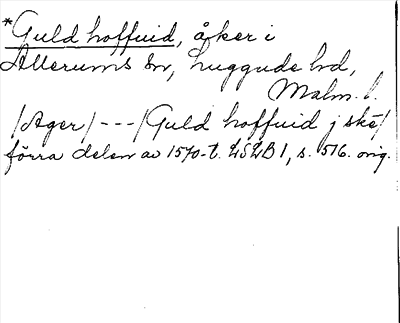 *Guld hoffuid, åker i
Allerums sn, Luggude hd,
Malm. l.
/Ager/ --- /Guld hoffuid j skē/
förra delen av 1570-t. LSLB 1, s. 516. orig.